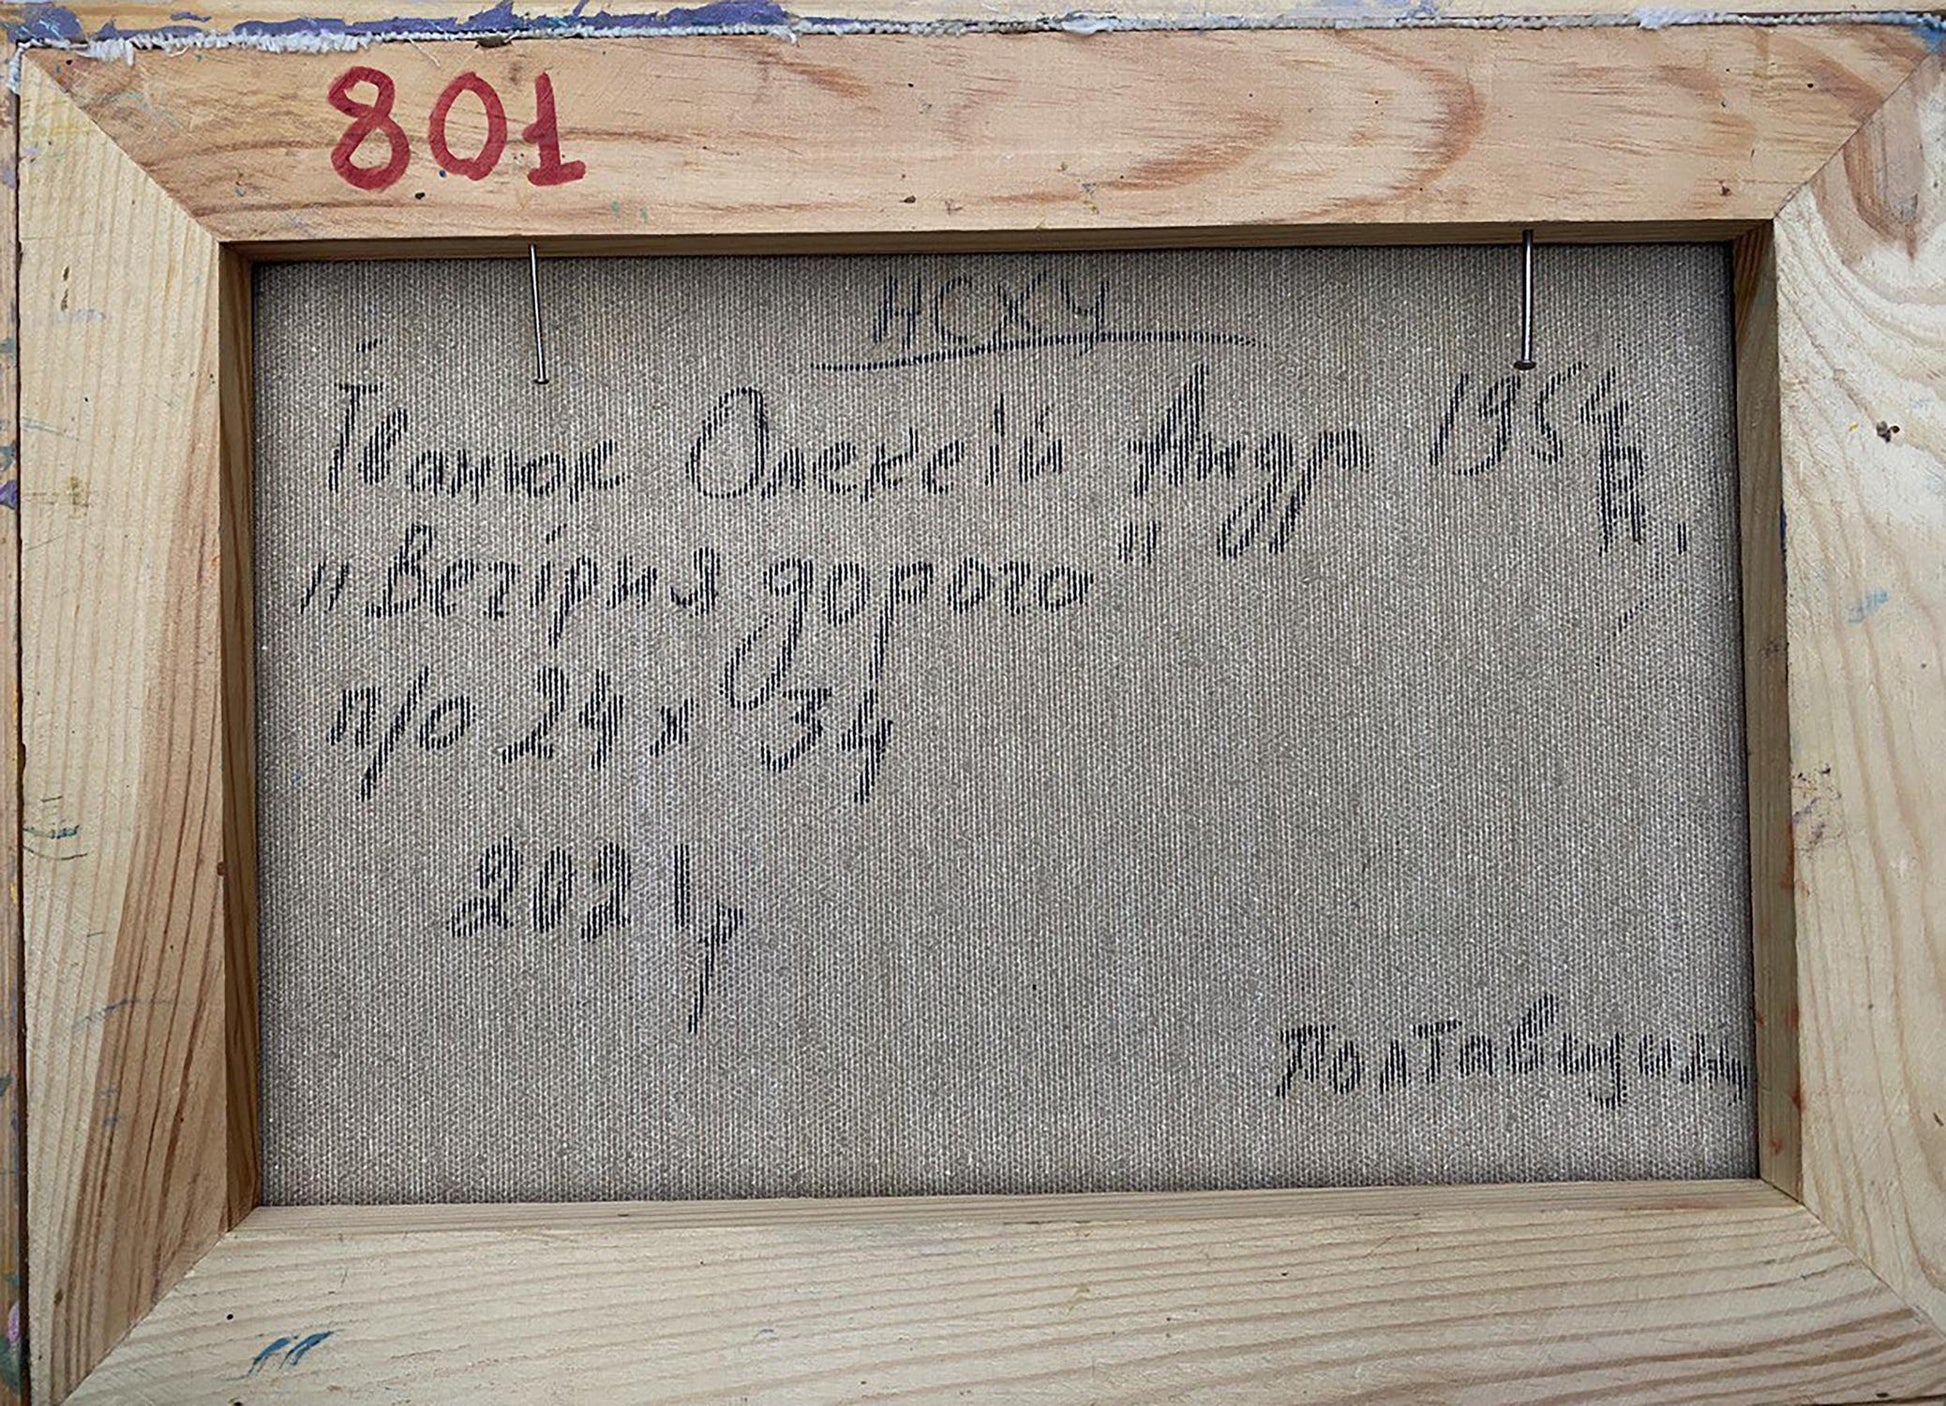 801
НСХУ
Іванюк Олексій Андр 1954
н.
"Вечірня дорога"
п/о 24 х 34
2021р
Полтавщина